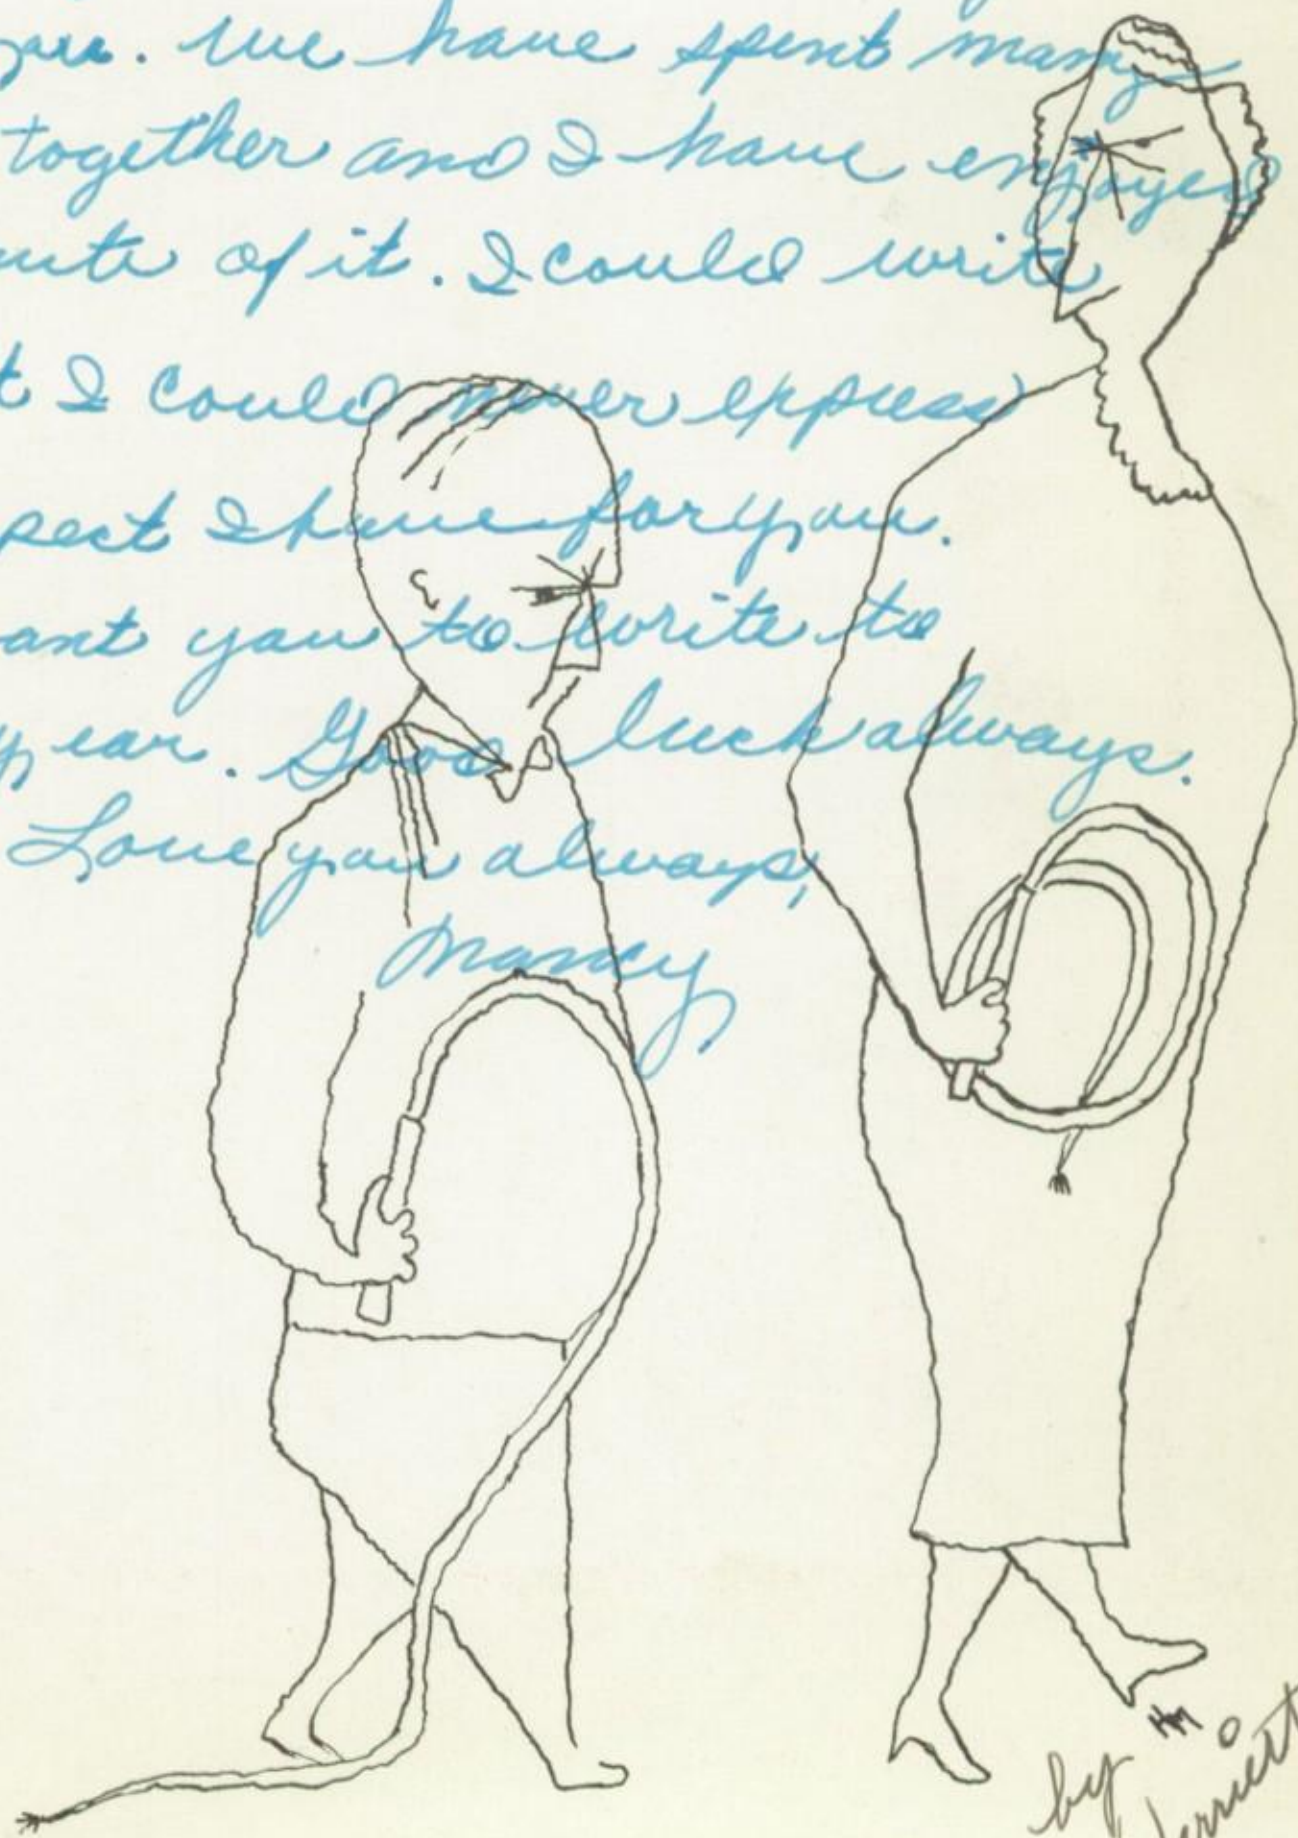 you. We have spent many
together and I have enjoyed
nute of it. I could write
t I could never express
pect I have for you.
ant you to write to
year. Good luck always.
Love you always,
Nancy
HM
by